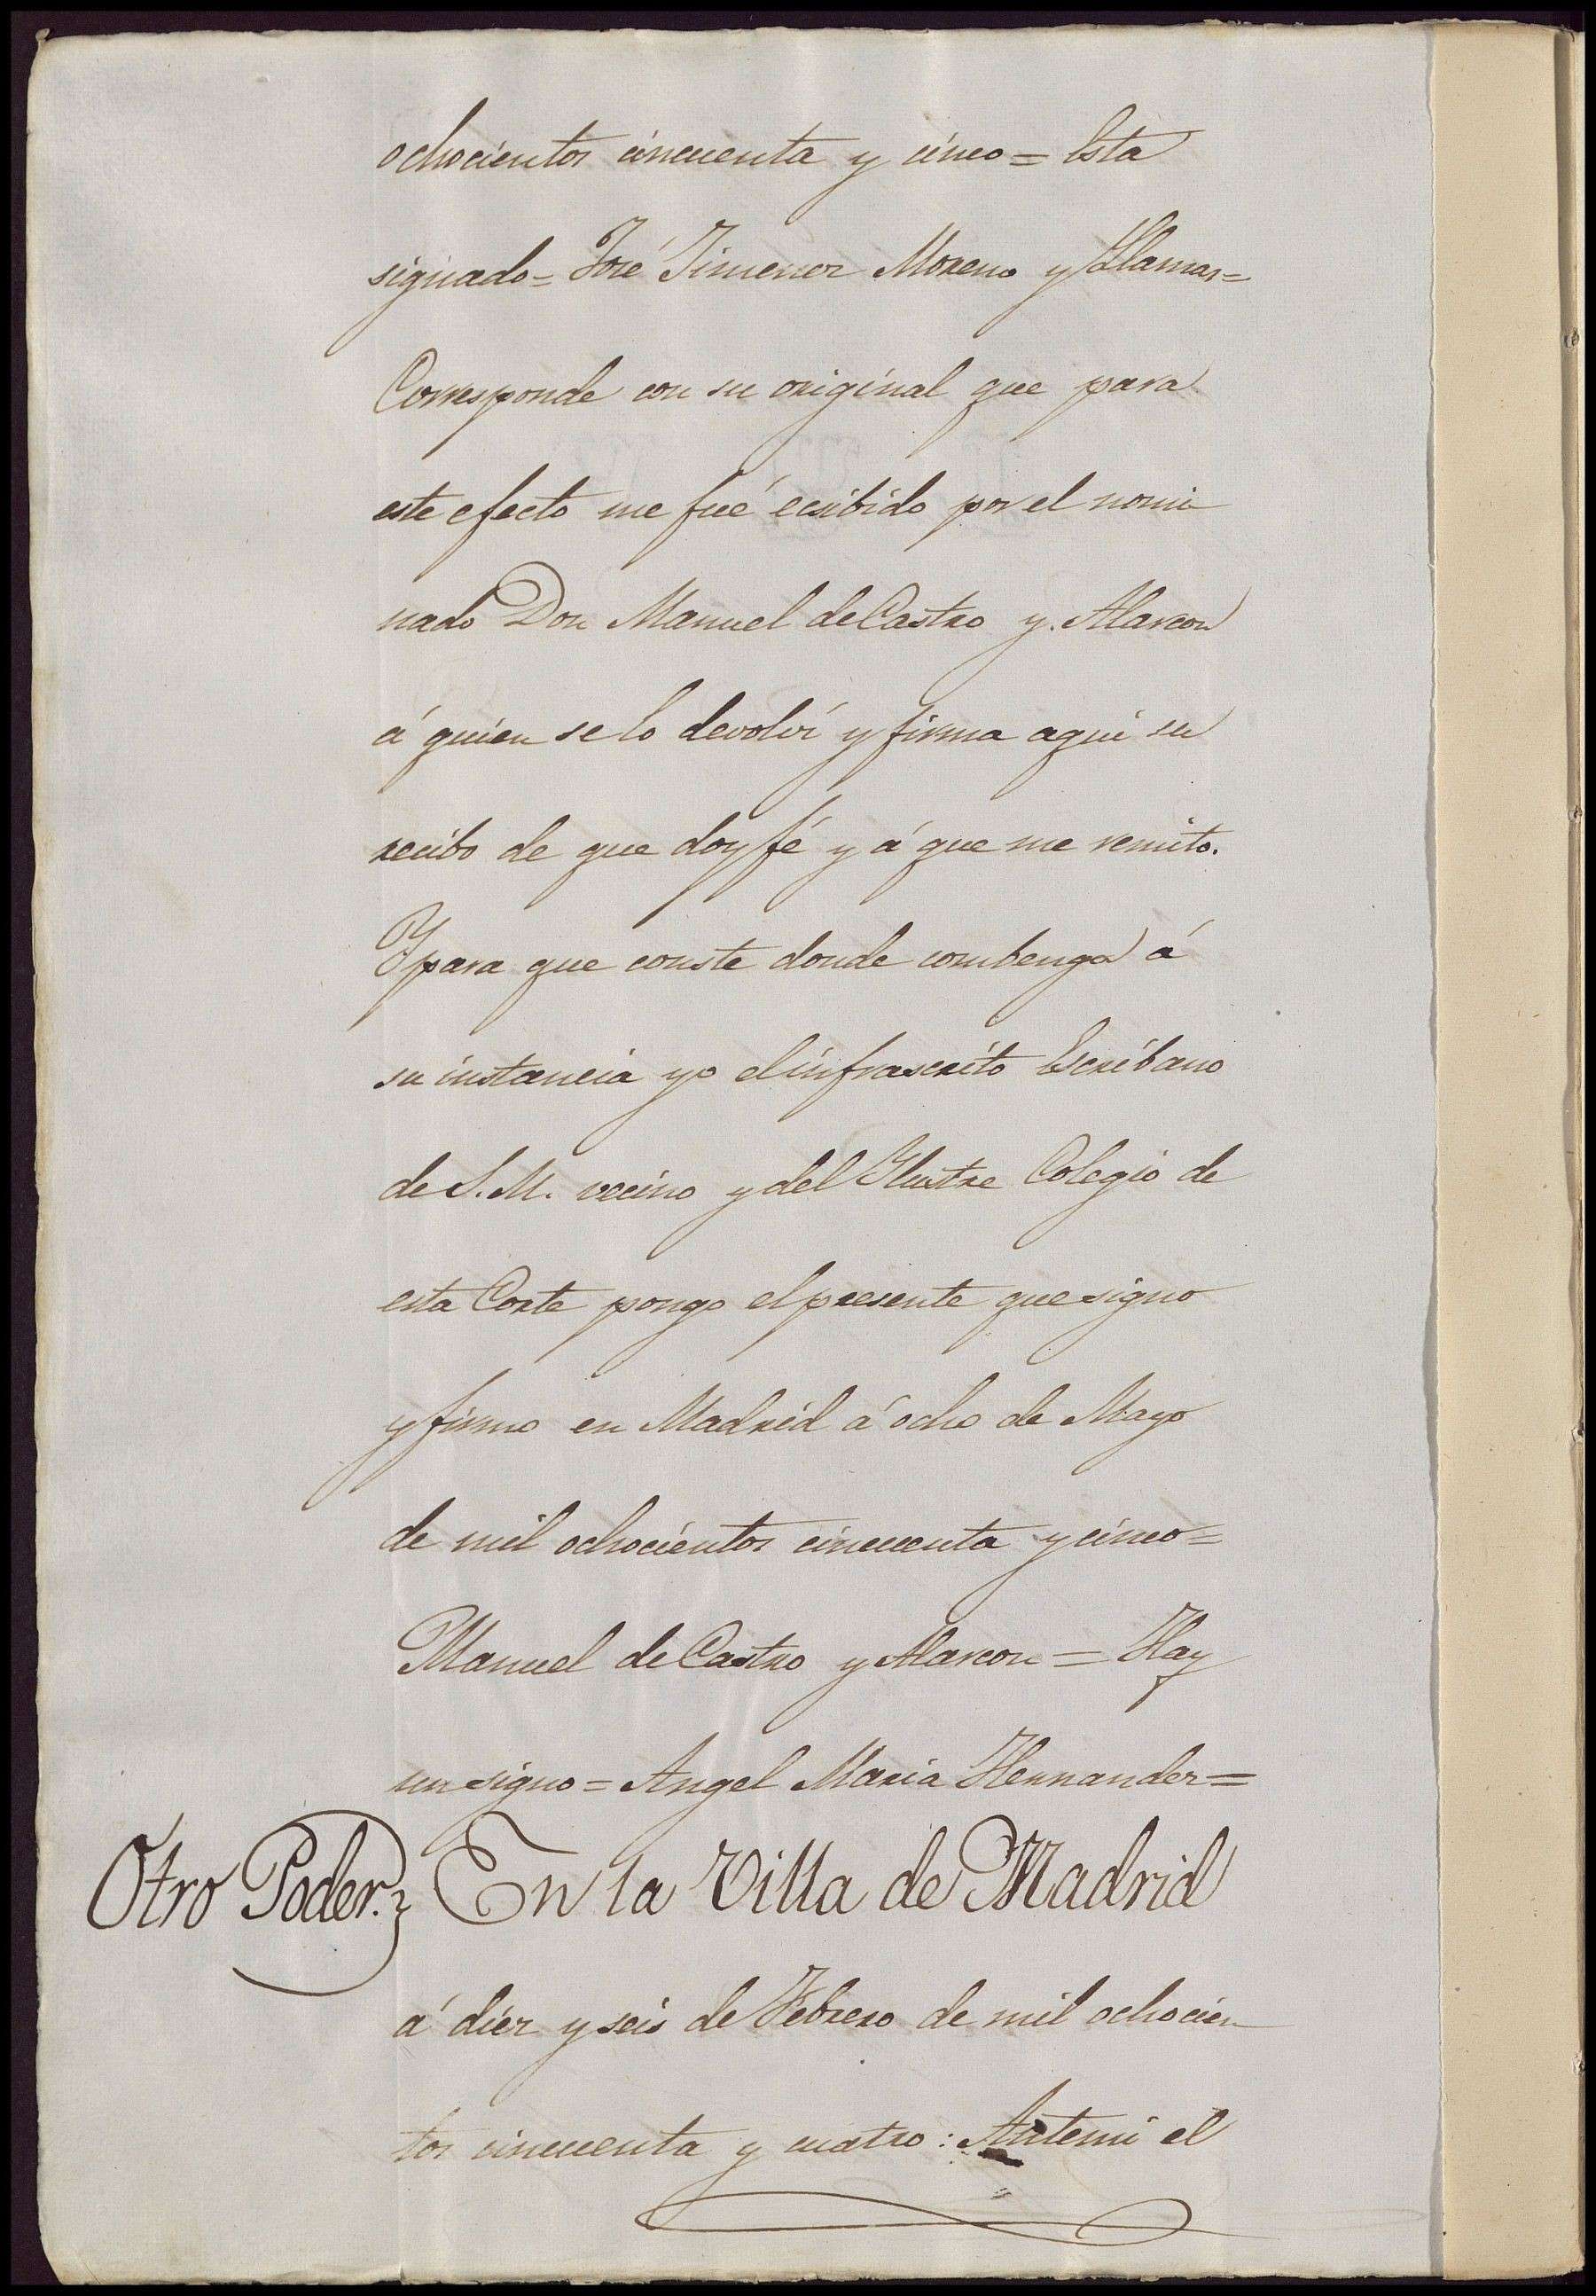 ochocientos cincuenta y cinco = Esta
signado = José Jimenez Moreno y Llamas =
Corresponde con su original que para
este efecto me fué ecsibido por el nomi
nado Don Manuel de Castro y Alarcon
á quien se lo devolví y firma aqui su
recibo de que doy fé y á que me remito.
Y para que conste donde combenga á
su instancia yo el infrascrito Escribano
de S. M. vecino y del Ylustre Colegio de
esta Corte pongo el presente que signo
y firmo en Madrid á ocho de Mayo
de mil ochocientos cincuenta y cinco =
Manuel de Castro y Alarcon = Hay
un signo = Angel Maria Hernandez =
Otro Poder. En la Villa de Madrid
á diez y seis de Febrero de mil ochocien
tos cincuenta y cuatro: Antemi el